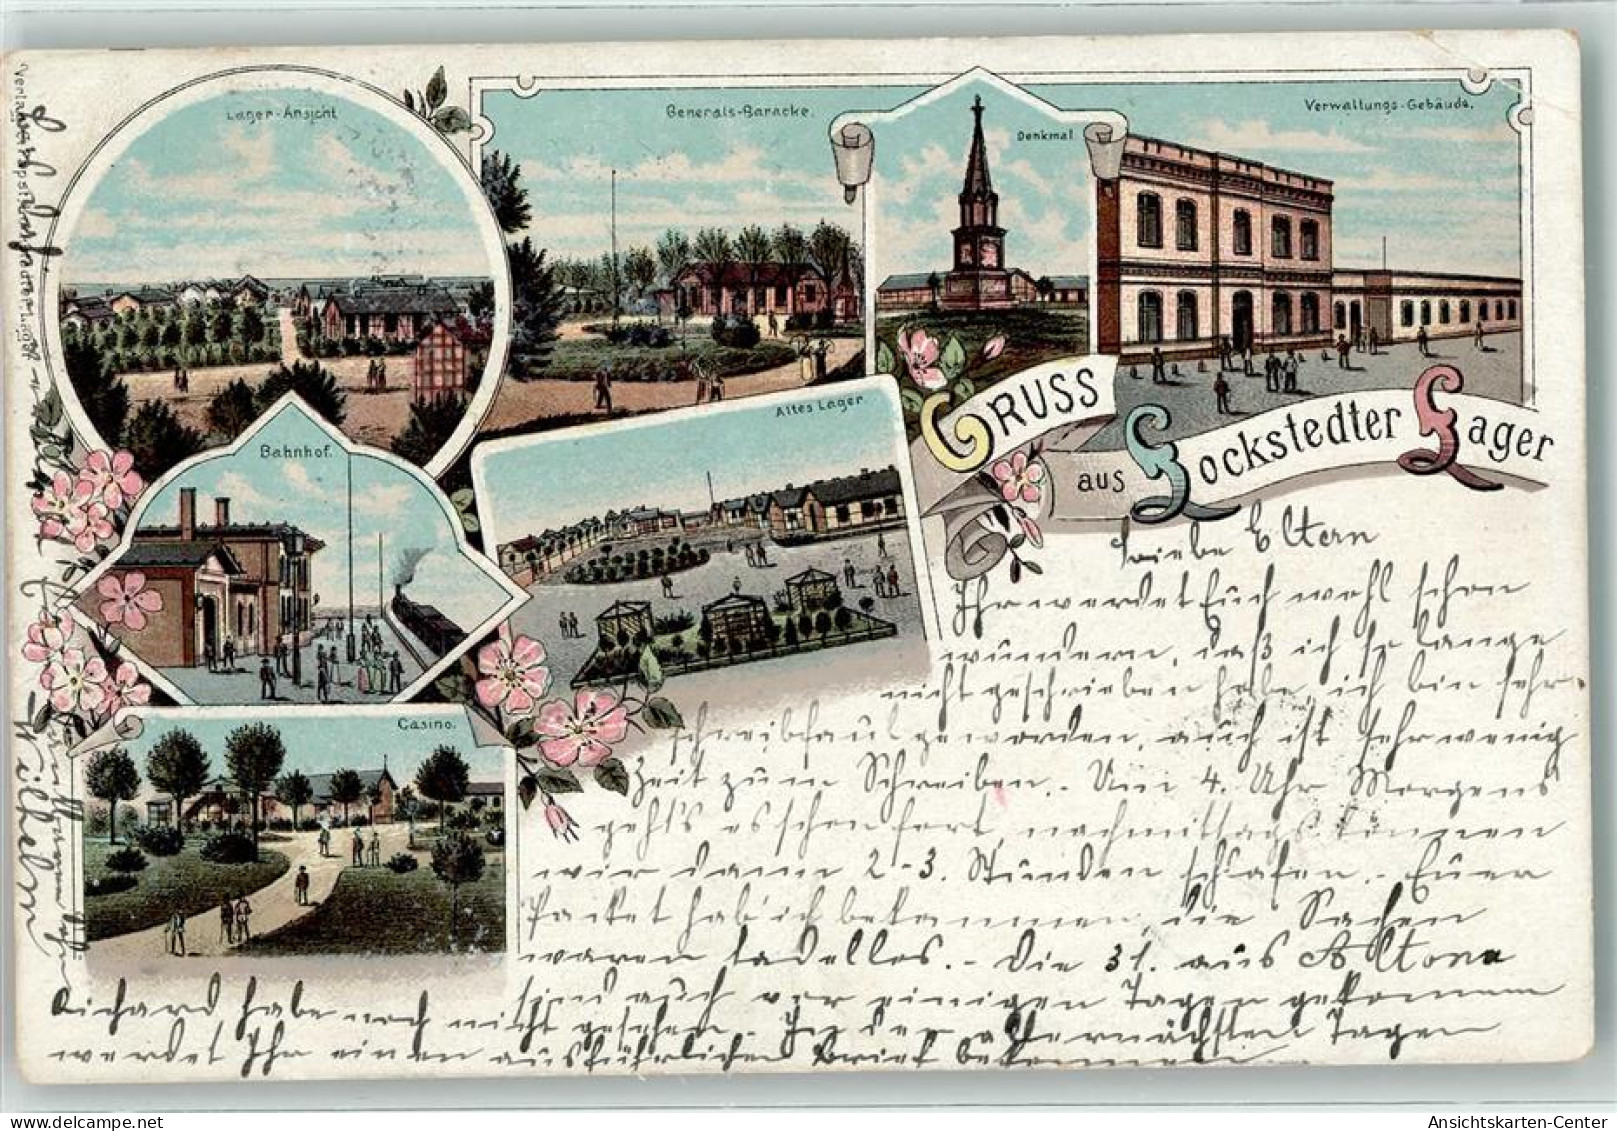 Lager-Ansicht
Generals-Baracke.
Denkmal
Verwaltungs-Gebäude.
Bahnhof.
Altes Lager
Casino.
GRUSS
aus Lockstedter Lager
Liebe Eltern
Ihr werdet Euch wohl schon
wundern, daß ich so lange
nicht geschrieben habe, ich bin sehr
schreibfaul geworden, auch ist sehr wenig
Zeit zum Schreiben. - Um 4. Uhr Morgens
geht's schon fort, nachmittags können
wir dann 2-3. Stunden schlafen. - Euer
Packet hab ich bekommen, die Sachen
waren tadellos. - Die 31. aus Altona
sind auch vor einigen Tagen gekommen
Richard habe noch nicht gesehen. - In den allernächsten Tagen
werdet Ihr einen ausführlichen Brief bekommen
Wilhelm
Ansichtskarten-Center